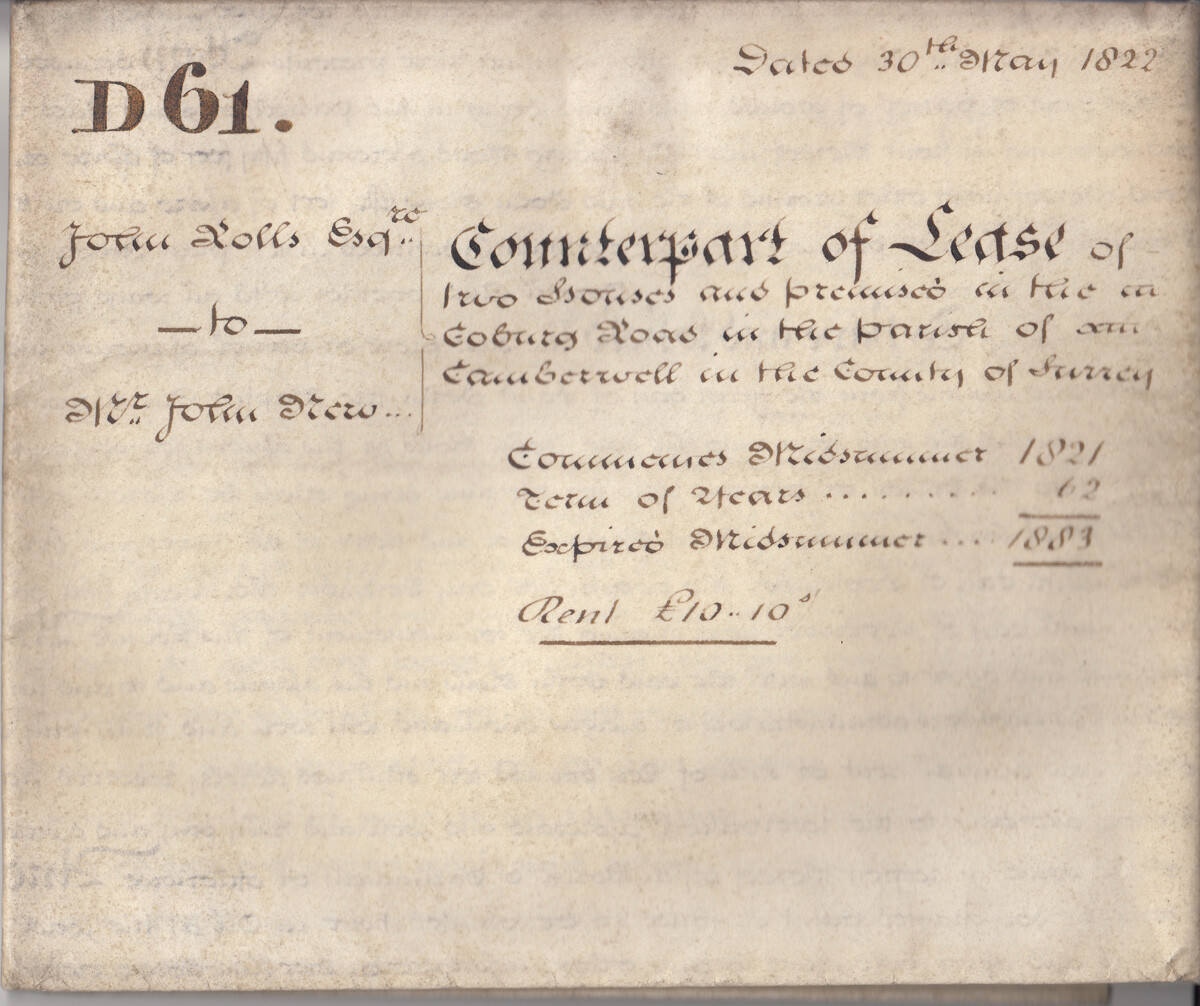 D 61.
Dated 30th May 1822
John Rolls Esqre
— to —
Mr John New...
Counterpart of Lease of
two Houses and premises in the
Coburg Road in the parish of
Camberwell in the County of Surrey
Commences Midsummer 1821
Term of Years .......... 62
Expires Midsummer .... 1883
Rent £10..10s